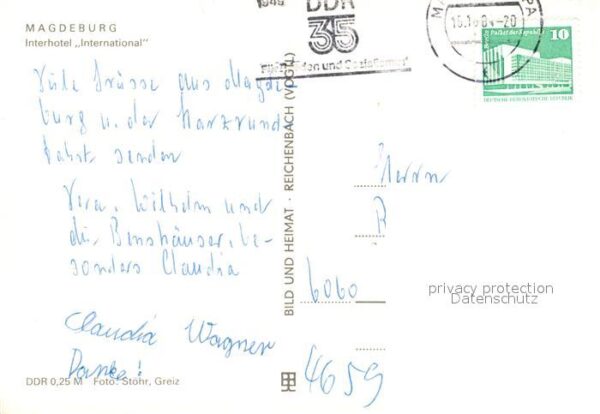 MAGDEBURG
Interhotel „International"
1949 DDR
35
Frieden und Sozialismus
10
Berlin Palast der Republik
DEUTSCHE DEMOKRATISCHE REPUBLIK
Viele Grüsse aus Magde-
burg u. der Harzrund
fahrt senden
Vera, Wilhelm und
die Benshäuser, be-
sonders Claudia
Claudia Wagner
Danke!
BILD UND HEIMAT · REICHENBACH (VOGTL)
Herrn
R
6060
4659
privacy protection
Datenschutz
DDR 0,25 M Foto: Stöhr, Greiz